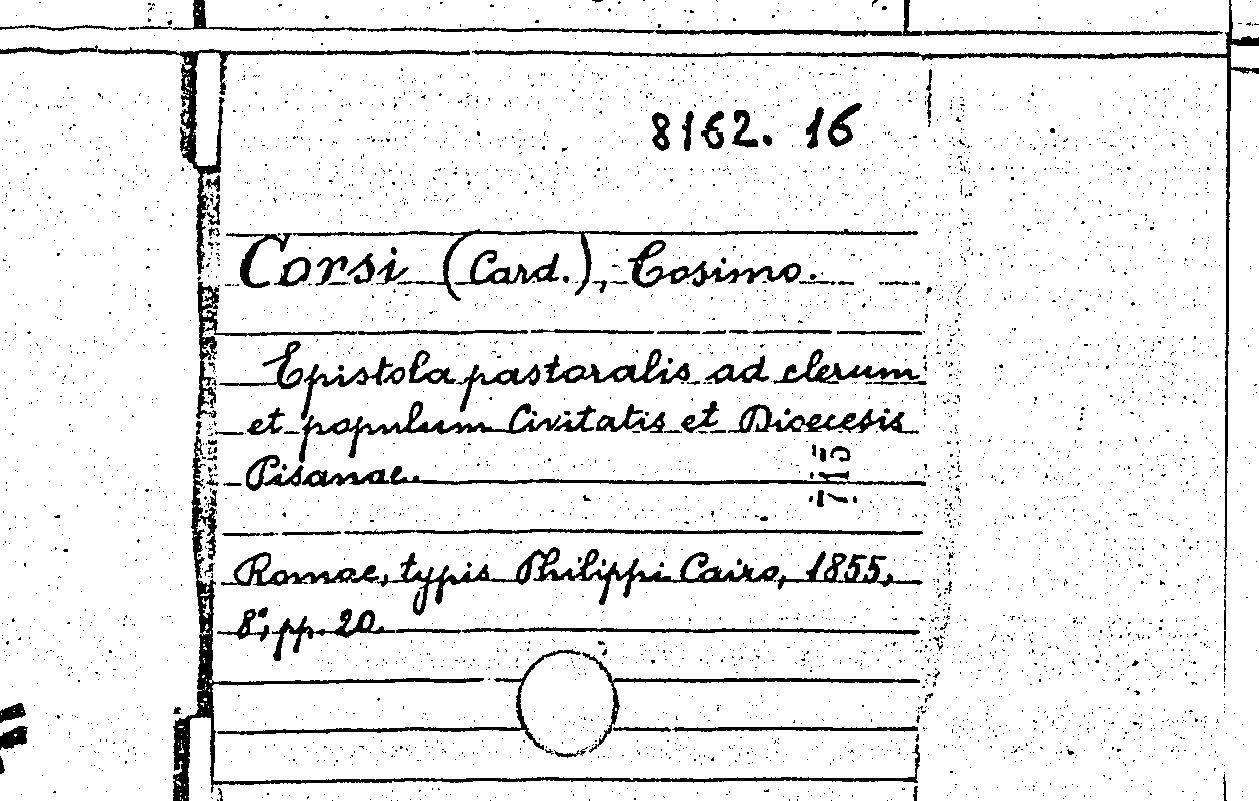 8162. 16
Corsi (Card.), Cosimo.
Epistola pastoralis ad clerum
et populum Civitatis et Dioecesis
Pisanae.
715
Romae, typis Philippi Cairo, 1855,
8°, pp. 20.